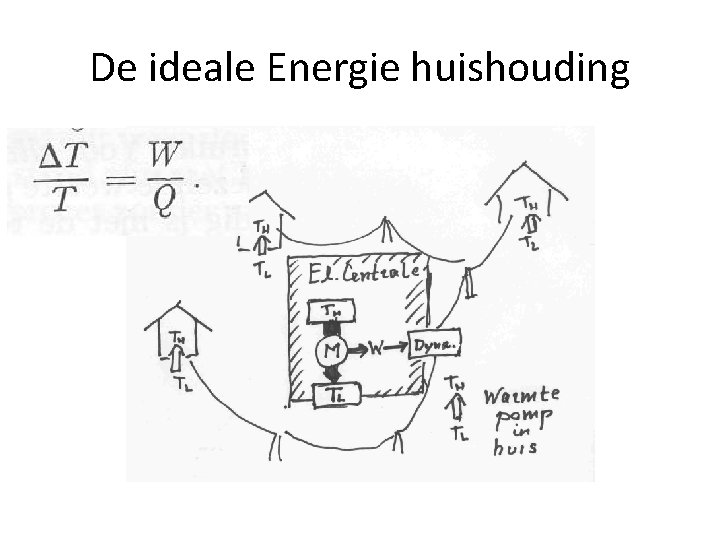 De ideale Energie huishouding
ΔT/T = W/Q.
TH
TL
TH
TL
El. Centrale
TH
M
W
Dyna.
TL
TH
TL
TH
TL
Warmte
pomp
in
huis